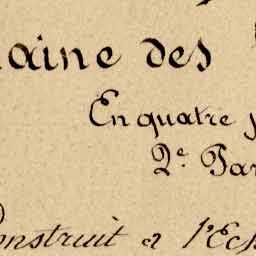 aine des
En quatre
2e Par
Construit a l'Ech